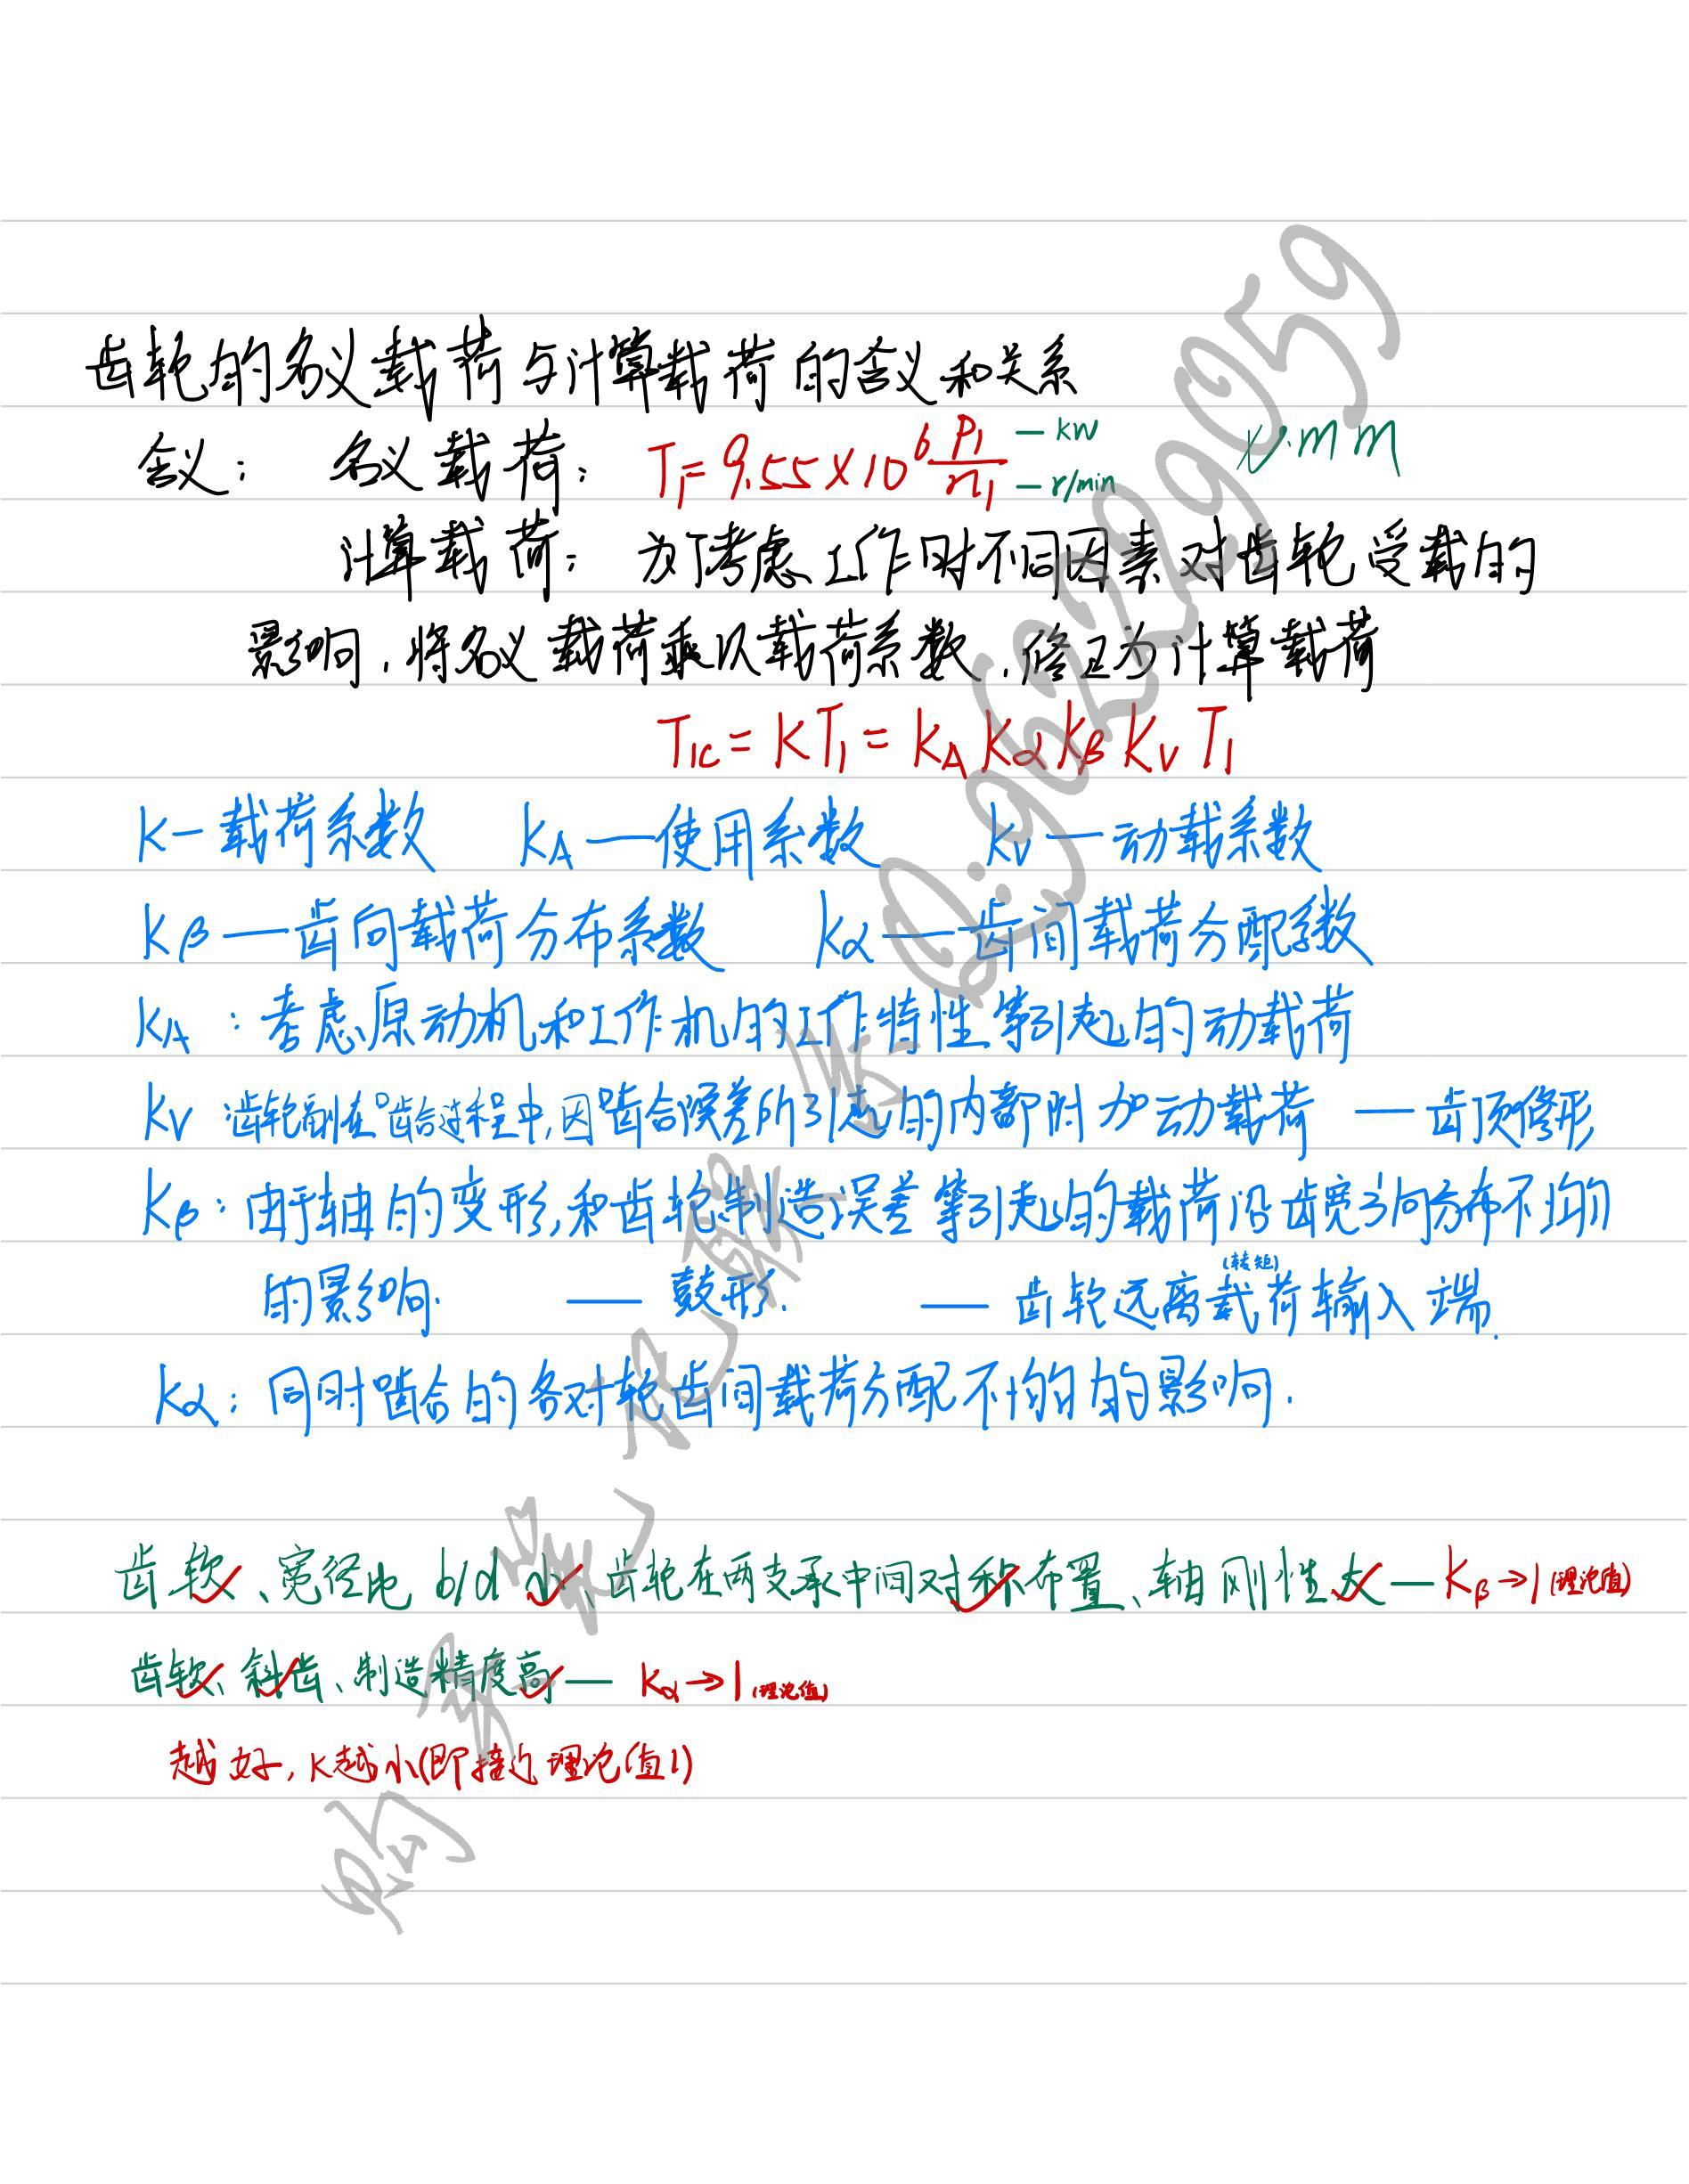 齿轮的名义载荷与计算载荷的含义和关系
含义： 名义载荷： T₁=9.55×10⁶ P₁/n₁ —kw —r/min N·mm
计算载荷： 为了考虑工作时不同因素对齿轮受载的
影响，将名义载荷乘以载荷系数，修正为计算载荷
T₁c=KT₁=KA Kα Kβ Kv T₁
K—载荷系数 KA—使用系数 Kv—动载系数
Kβ—齿向载荷分布系数 Kα—齿间载荷分配系数
KA：考虑原动机和工作机的工作特性等引起的动载荷
Kv 齿轮副在啮合过程中，因啮合误差所引起的内部附加动载荷 —齿顶修形
Kβ：由于轴的变形，和齿轮制造误差等引起的载荷沿齿宽方向分布不均
的影响. —鼓形. —齿轮远离载荷(转矩)输入端.
Kα：同时啮合的各对轮齿间载荷分配不均的影响.
齿软、宽径比 b/d 小、齿轮在两支承中间对称布置、轴刚性大—Kβ→1(理论值)
齿软、斜齿、制造精度高—Kα→1(理论值)
越好，K越小(即接近理论值1)
购买笔记联系Q:962229059